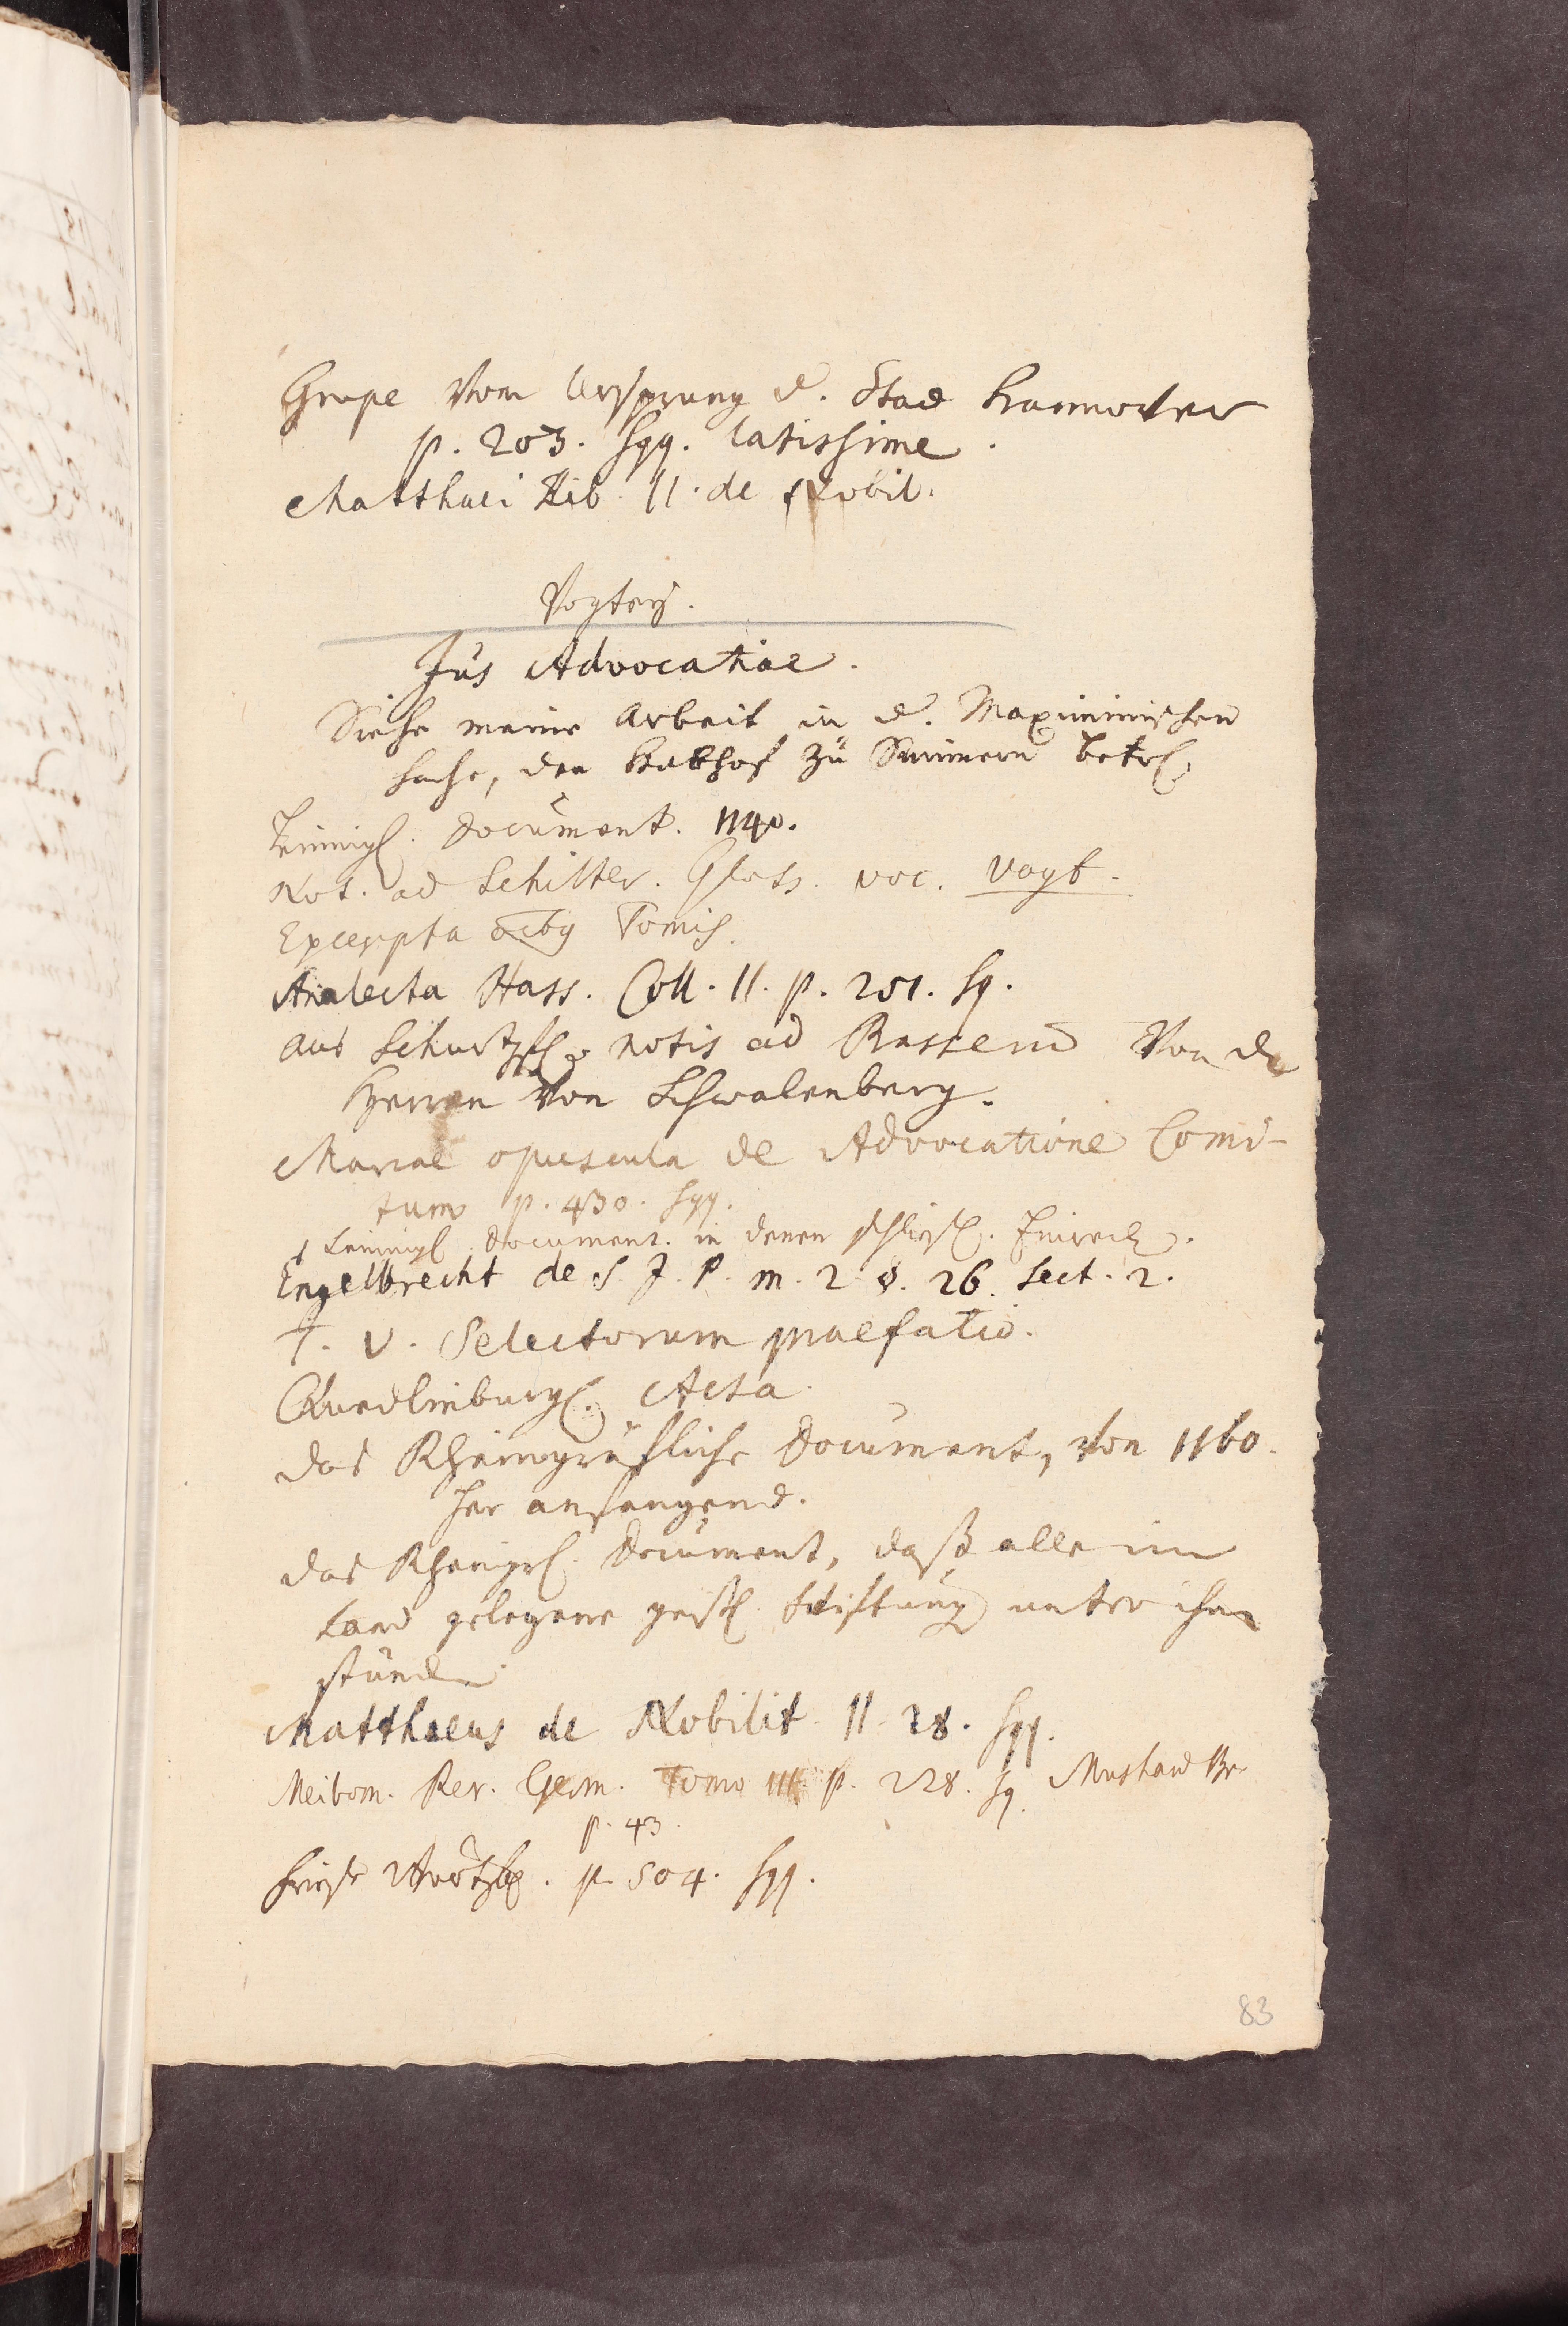 Grupe Vom Ursprung d. Stad Hannover
p. 203. sqq. latissime.
Matthaei Lib. II. de Nobil.
Vogtey.
Jus Advocatiae.
Siehe meine Arbeit in d. Maximinischen
Sache, den Hubhof zu Simmern betr.
Leining. Document. 1140.
Not. ad Schilter. Gloss. voc. Vogt.
Excerpta Tomis
Analecta Hass. Coll. II. p. 201. sq.
aus Schurtzfl. notis ad Von de
Herren Von Schwalenberg.
opuscula de Advocatione Comi-
tum p. 430. sqq.
Leining. Document. in denen
Engelbrecht de S. J. P. m. 2 §. 26. Sect. 2.
T. V. Selectorum praefatio.
Quedlinburg. Acta.
das Rheingräfliche Document, von 1160.
her anfangend.
das Rheingr. Document, daß alle im
Land gelegene geistl. Stiftung unter ihm
stünde.
Matthaeus de Nobilit. II. 28. sqq.
Meibom. Rer. Germ. Tomo III. p. 228. sq.
p. 43.
Friese Würtzb. p. 504. sqq.
83